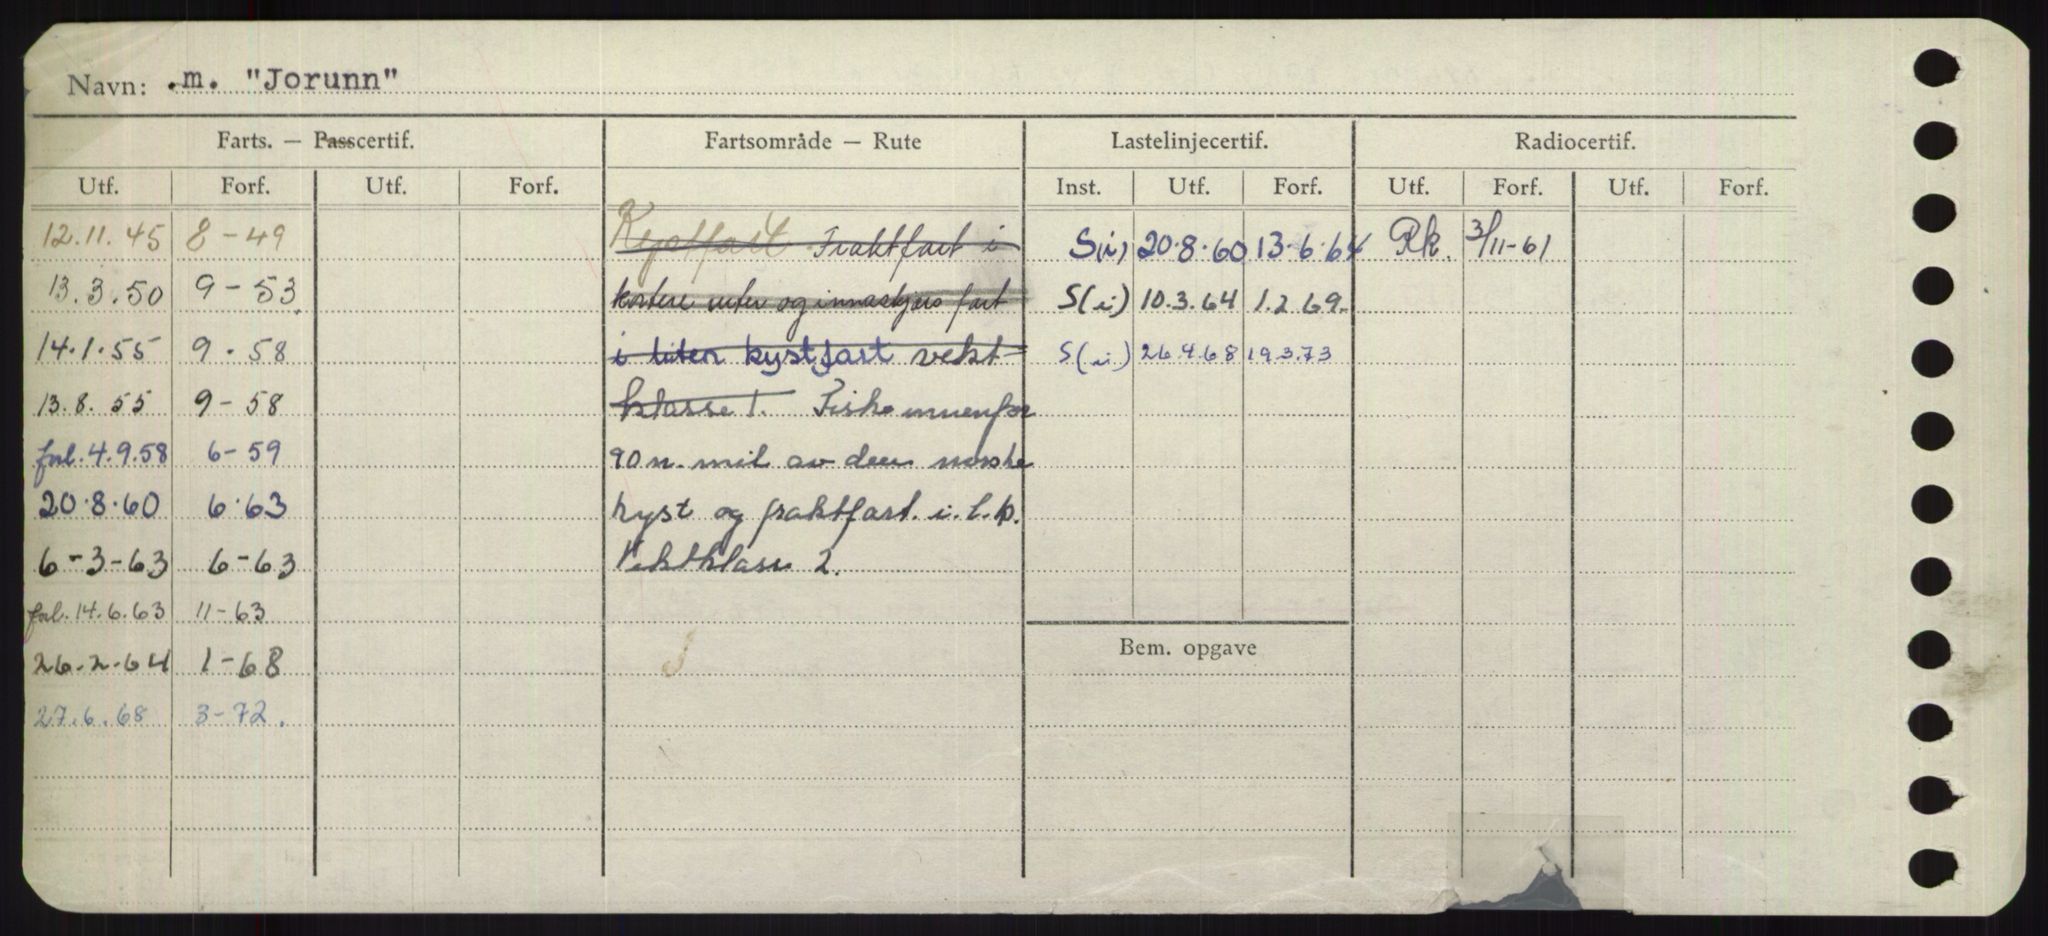 Navn: .m. "Jorunn"
Farts. — Passcertif. Fartsområde — Rute Lastelinjecertif. Radiocertif.
Utf. Forf. Utf. Forf. Inst. Utf. Forf. Utf. Forf. Utf. Forf.
12.11.45 8-49 Kystfart Fraktfart i S(i) 20.8.60 13.6.64 Rk. 3/11-61
13.3.50 9-53 kortere ruter og innaskjærs fart S(i) 10.3.64 1.2.69.
14.1.55 9.58 i liten kystfart vekt- S(i) 26.4.68 19.3.73
13.8.55 9-58 klasse 1. Fiske innenfor
forl. 4.9.58 6-59 90 n. mil av den norske
20.8.60 6.63 kyst og fraktfart i. l. k.
6-3-63 6-63 Vektklasse 2.
forl. 14.6.63 11-63
Bem. opgave
26.2.64 1-68
27.6.68 3-72.